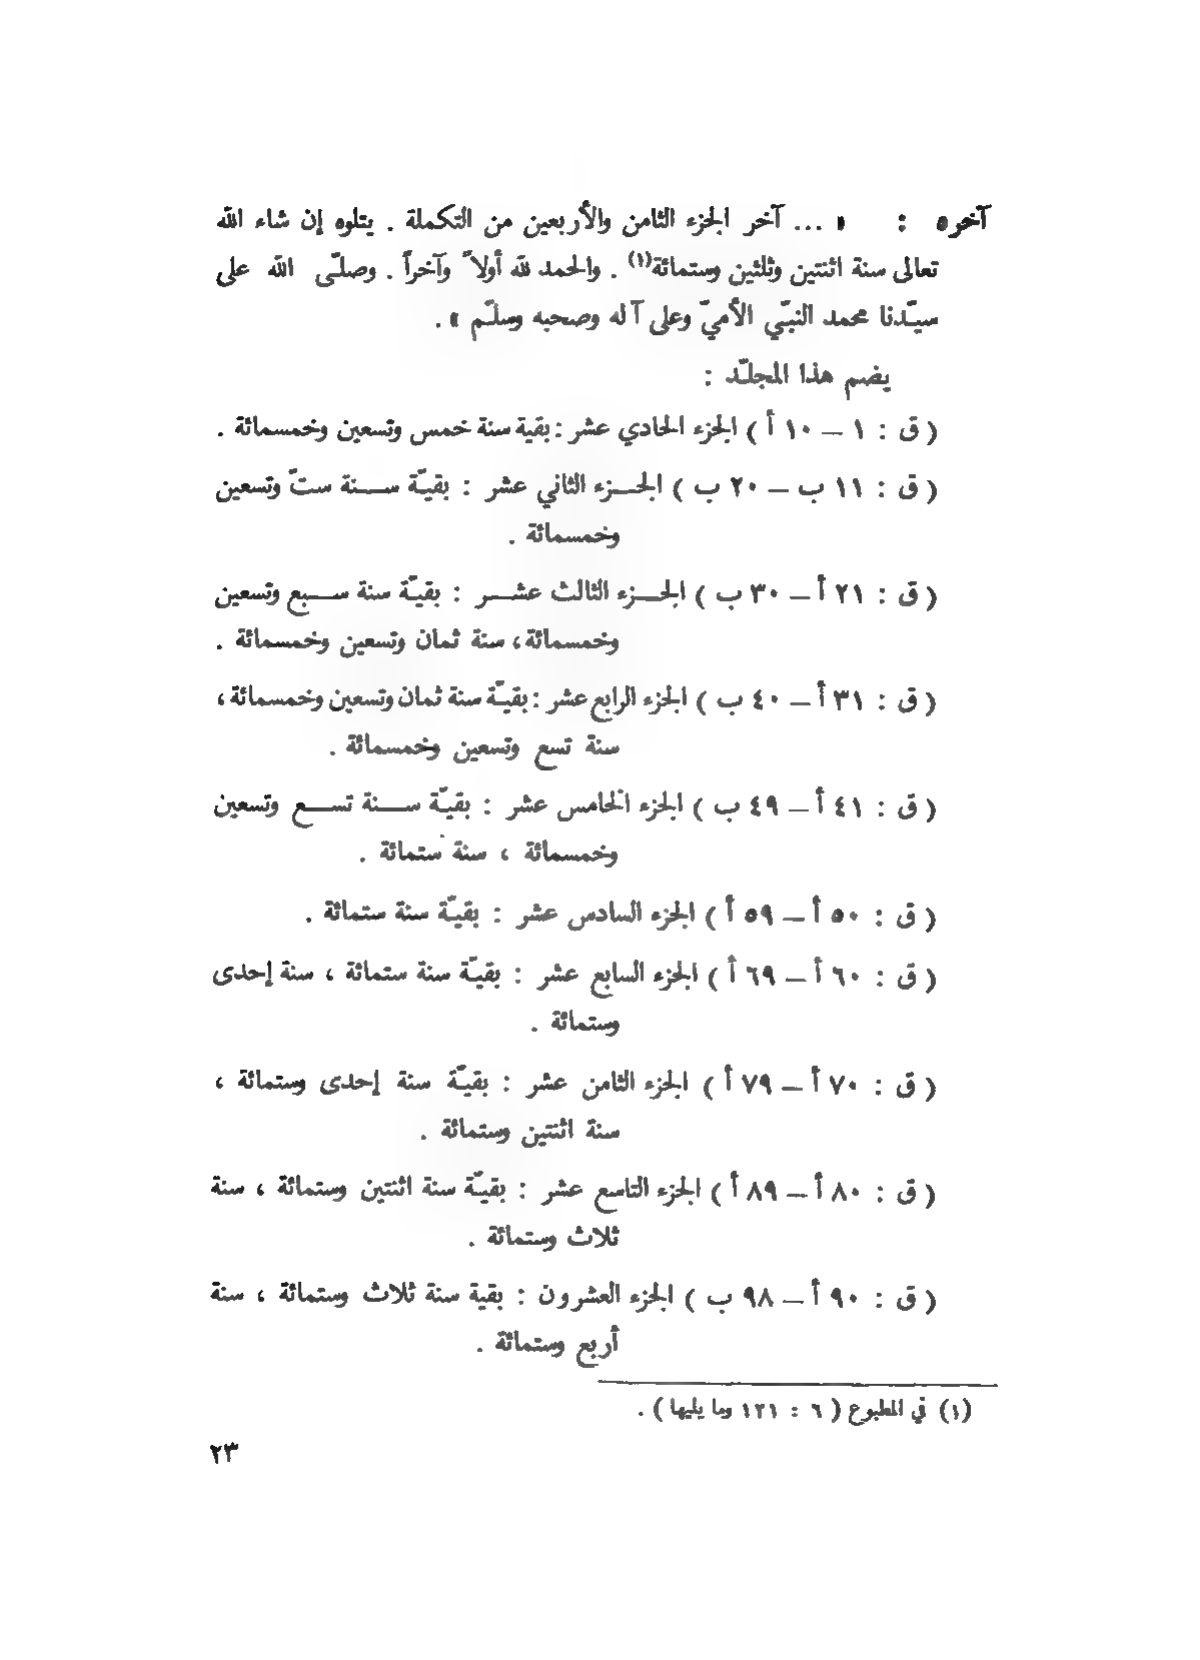 آخره : « ... آخر الجزء الثامن والأربعين من التكملة . يتلوه إن شاء الله
تعالى سنة اثنتين وثلثين وستمائة(١) . والحمد لله أولاً وآخراً . وصلّى الله على
سيّدنا محمد النبّي الأميّ وعلى آله وصحبه وسلّم » .
يضم هذا المجلّد :
( ق : ١ – ١٠ أ ) الجزء الحادي عشر : بقية سنة خمس وتسعين وخمسمائة .
( ق : ١١ ب – ٢٠ ب ) الجزء الثاني عشر : بقيّة سنة ستّ وتسعين
وخمسمائة .
( ق : ٢١ أ – ٣٠ ب ) الجزء الثالث عشر : بقيّة سنة سبع وتسعين
وخمسمائة، سنة ثمان وتسعين وخمسمائة .
( ق : ٣١ أ – ٤٠ ب ) الجزء الرابع عشر : بقيّة سنة ثمان وتسعين وخمسمائة ،
سنة تسع وتسعين وخمسمائة .
( ق : ٤١ أ – ٤٩ ب ) الجزء الخامس عشر : بقيّة سنة تسع وتسعين
وخمسمائة ، سنة ستمائة .
( ق : ٥٠ أ – ٥٩ أ ) الجزء السادس عشر : بقيّة سنة ستمائة .
( ق : ٦٠ أ – ٦٩ أ ) الجزء السابع عشر : بقيّة سنة ستمائة ، سنة إحدى
وستمائة .
( ق : ٧٠ أ – ٧٩ أ ) الجزء الثامن عشر : بقيّة سنة إحدى وستمائة ،
سنة اثنتين وستمائة .
( ق : ٨٠ أ – ٨٩ أ ) الجزء التاسع عشر : بقيّة سنة اثنتين وستمائة ، سنة
ثلاث وستمائة .
( ق : ٩٠ أ – ٩٨ ب ) الجزء العشرون : بقية سنة ثلاث وستمائة ، سنة
أربع وستمائة .
(١) في المطبوع ( ٦ : ١٢١ وما يليها ) .
٢٣